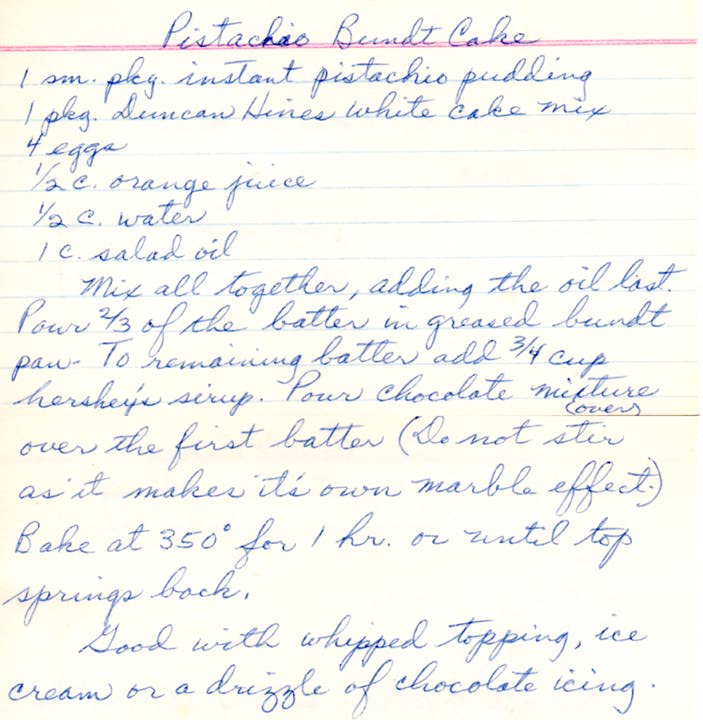 Pistachio Bundt Cake
1 sm. pkg. instant pistachio pudding
1 pkg. Duncan Hines white cake mix
4 eggs
1/2 c. orange juice
1/2 c. water
1 c. salad oil
Mix all together, adding the oil last.
Pour 2/3 of the batter in greased bundt
pan. To remaining batter add 3/4 cup
hershey's sirup. Pour chocolate mixture
(over)
over the first batter (Do not stir
as it makes it's own marble effect.)
Bake at 350° for 1 hr. or until top
springs back.
Good with whipped topping, ice
cream or a drizzle of chocolate icing.